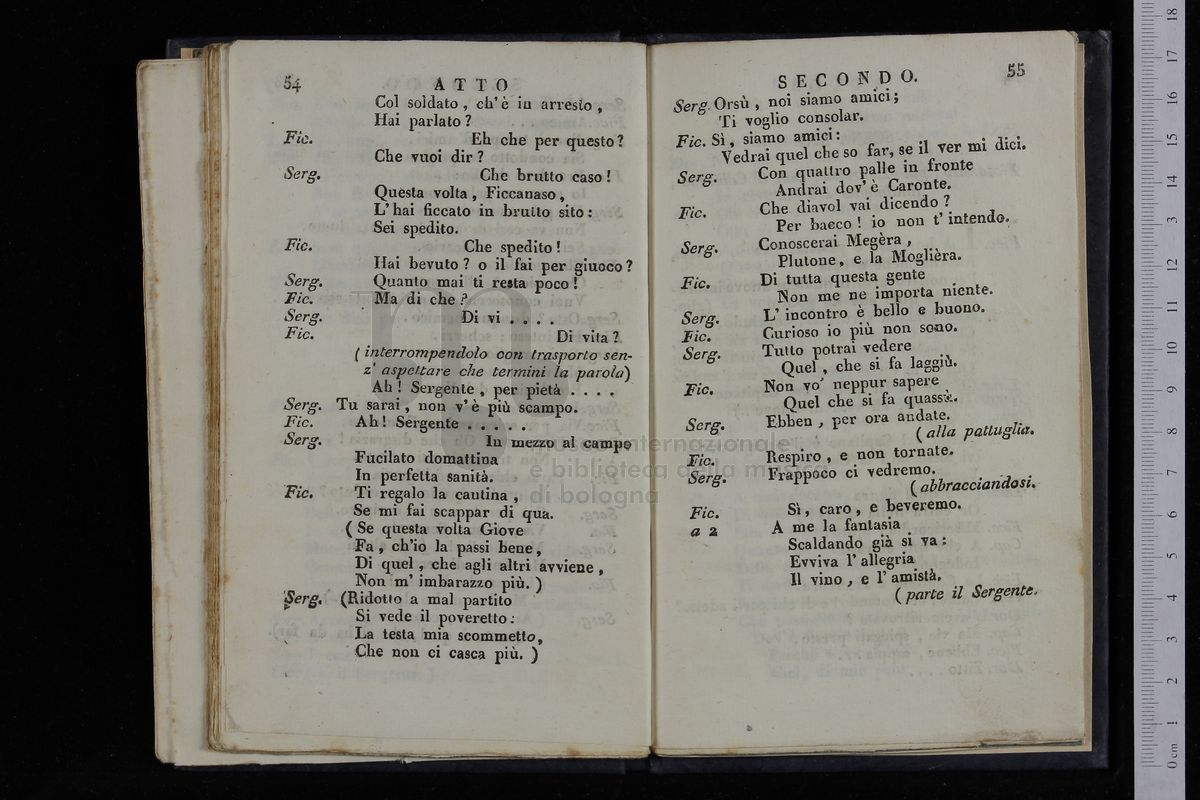 54
ATTO
Col soldato , ch' è in arresto ,
Hai parlato ?
Fic. Eh che per questo ?
Che vuoi dir ?
Serg. Che brutto caso !
Questa volta , Ficcanaso ,
L' hai ficcato in brutto sito :
Sei spedito.
Fic. Che spedito !
Hai bevuto ? o il fai per giuoco ?
Serg. Quanto mai ti resta poco !
Fic. Ma di che ?
Serg. Di vi . . . .
Fic. Di vita ?
( interrompendolo con trasporto sen-
z' aspettare che termini la parola)
Ah ! Sergente , per pietà . . . .
Serg. Tu sarai , non v' è più scampo.
Fic. Ah ! Sergente . . . . .
Serg. In mezzo al campo
Fucilato domattina
In perfetta sanità.
Fic. Ti regalo la cantina ,
Se mi fai scappar di qua.
( Se questa volta Giove
Fa , ch'io la passi bene ,
Di quel , che agli altri avviene ,
Non m' imbarazzo più. )
Serg. (Ridotto a mal partito
Si vede il poveretto :
La testa mia scommetto,
Che non ci casca più. )
SECONDO.
55
Serg. Orsù , noi siamo amici ;
Ti voglio consolar.
Fic. Sì , siamo amici :
Vedrai quel che so far, se il ver mi dici.
Serg. Con quattro palle in fronte
Andrai dov' è Caronte.
Fic. Che diavol vai dicendo ?
Per bacco ! io non t' intendo.
Serg. Conoscerai Megèra ,
Plutone, e la Moglièra.
Fic. Di tutta questa gente
Non me ne importa niente.
Serg. L' incontro è bello e buono.
Fic. Curioso io più non sono.
Serg. Tutto potrai vedere
Quel , che si fa laggiù.
Fic. Non vo' neppur sapere
Quel che si fa quassù.
Serg. Ebben , per ora andate.
( alla pattuglia.
Fic. Respiro , e non tornate.
Serg. Frappoco ci vedremo.
( abbracciandosi.
Fic. Sì , caro , e beveremo.
a 2 A me la fantasia
Scaldando già si va :
Evviva l' allegria
Il vino , e l' amistà.
( parte il Sergente.
internazionale
e biblioteca della musica
di bologna
0 cm 1 2 3 4 5 6 7 8 9 10 11 12 13 14 15 16 17 18